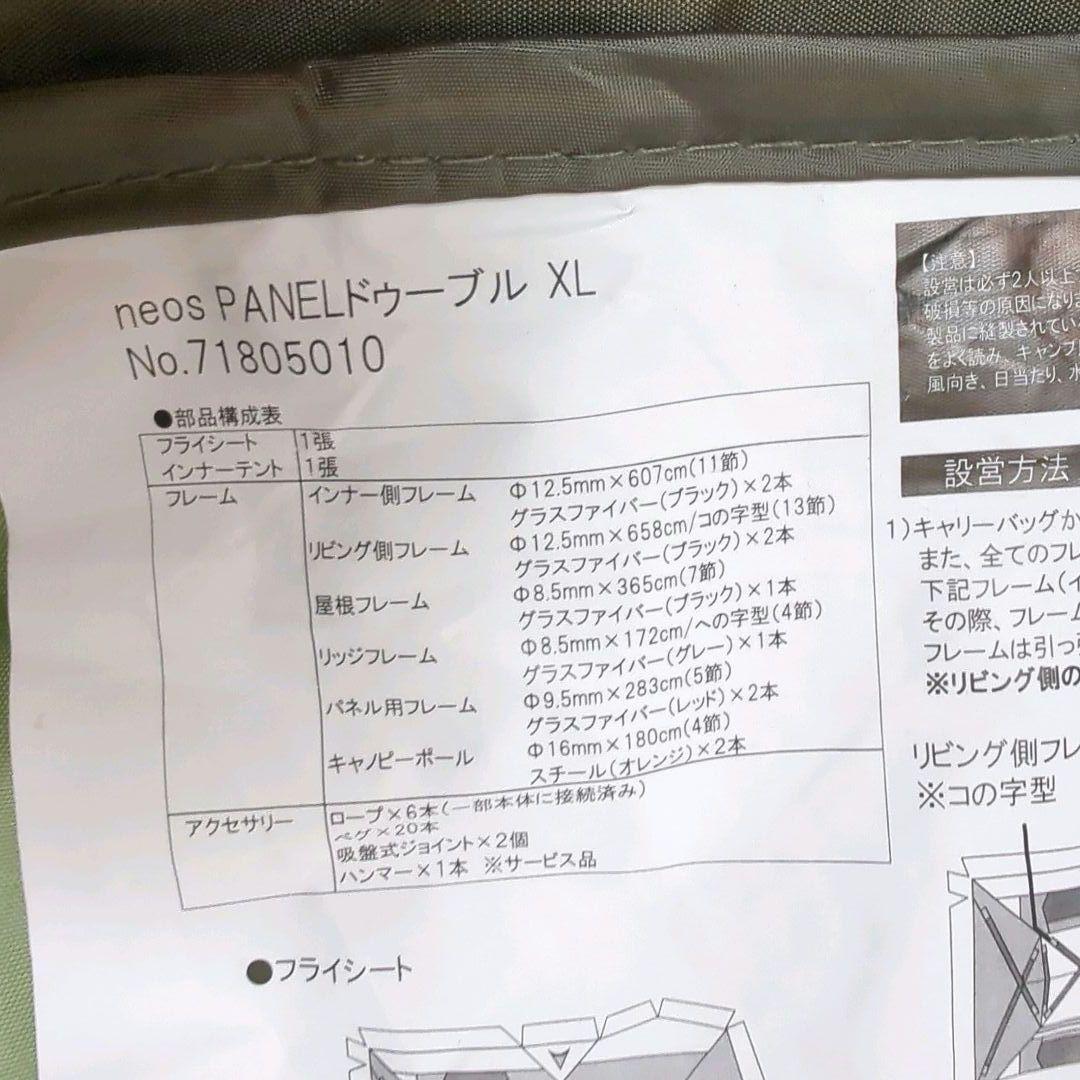 neos PANELドゥーブル XL
No.71805010
●部品構成表
フライシート 1張
インナーテント 1張
フレーム インナー側フレーム Φ12.5mm×607cm(11節)
グラスファイバー(ブラック)×2本
リビング側フレーム Φ12.5mm×658cm/コの字型(13節)
グラスファイバー(ブラック)×2本
屋根フレーム Φ8.5mm×365cm(7節)
グラスファイバー(ブラック)×1本
リッジフレーム Φ8.5mm×172cm/への字型(4節)
グラスファイバー(グレー)×1本
パネル用フレーム Φ9.5mm×283cm(5節)
グラスファイバー(レッド)×2本
キャノピーポール Φ16mm×180cm(4節)
スチール(オレンジ)×2本
アクセサリー ロープ×6本(一部本体に接続済み)
ペグ×20本
吸盤式ジョイント×2個
ハンマー×1本 ※サービス品
●フライシート
【注意】
設営は必ず2人以上
破損等の原因になりま
製品に縫製されてい
をよく読み、キャンプ
風向き、日当たり、水
設営方法
1)キャリーバッグか
また、全てのフレ
下記フレーム(イ
その際、フレーム
フレームは引っ
※リビング側の
リビング側フレ
※コの字型